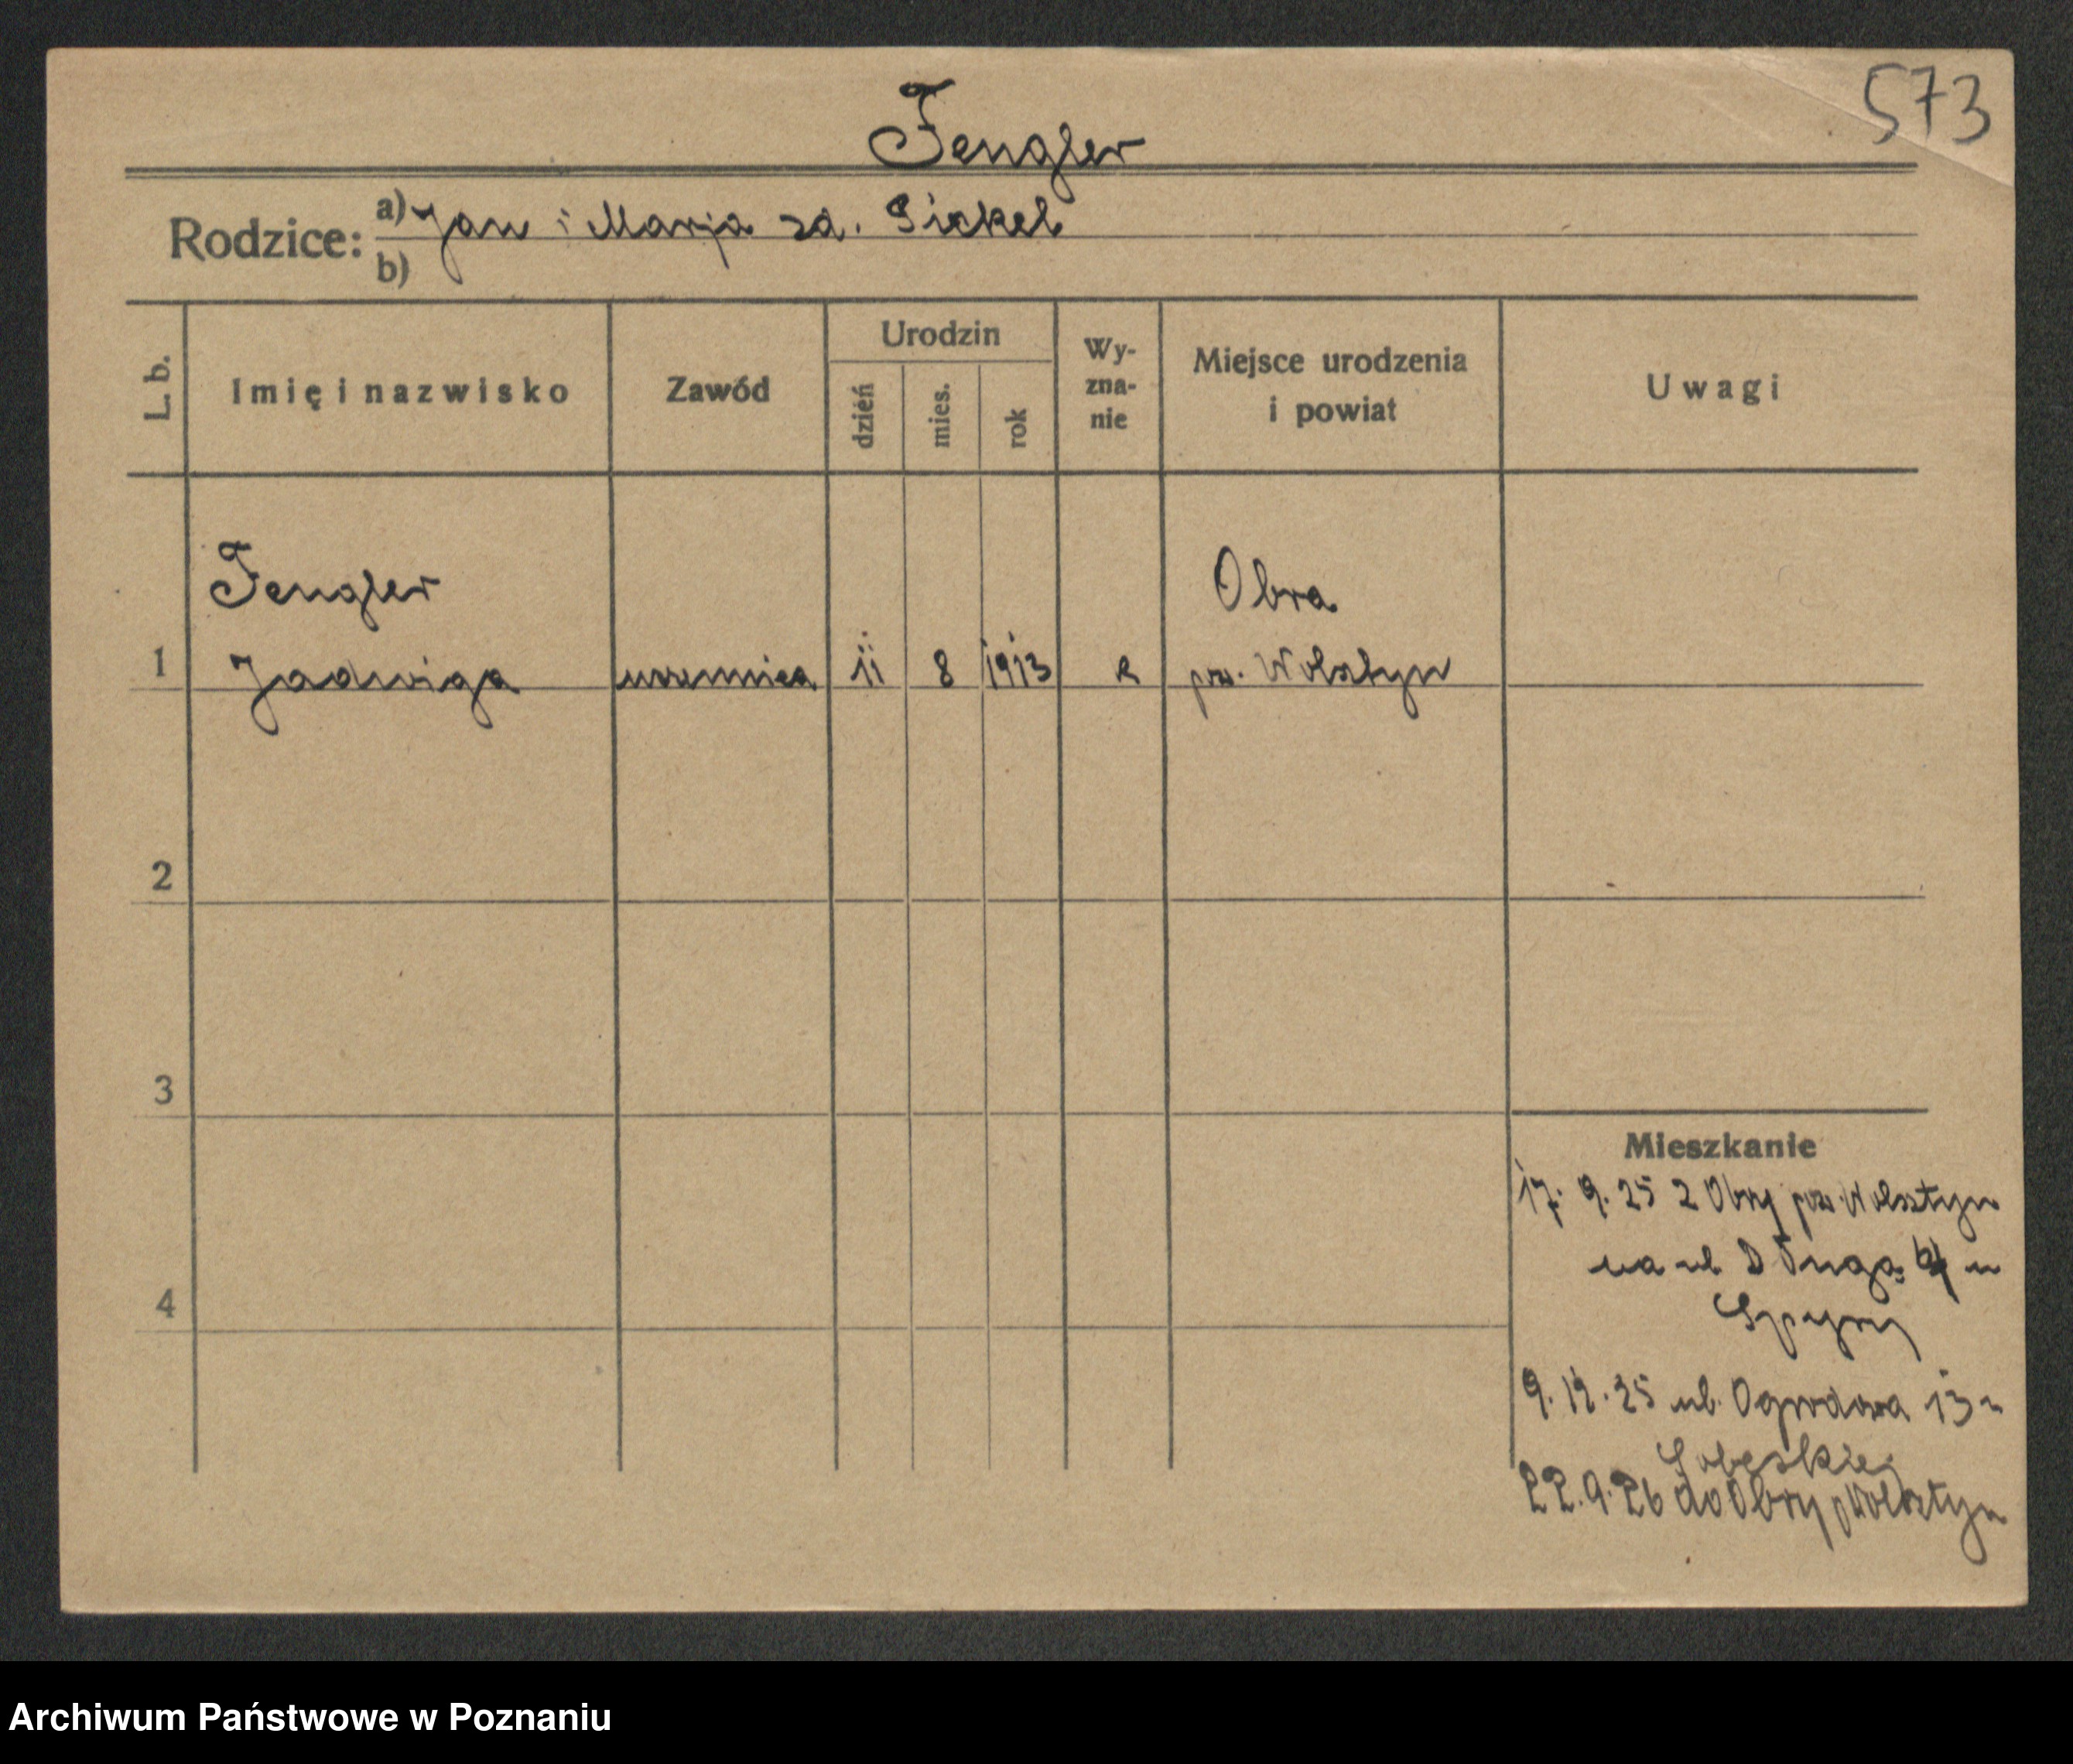 573
Fengler
Rodzice: a) Jan i Marja zd. Sickel
b)
L. b. Imię i nazwisko Zawód Urodzin dzień mies. rok Wy-zna-nie Miejsce urodzenia i powiat Uwagi
Fengler Obra
1 Jadwiga uczennica 11 8 1913 k pow. Wolsztyn
2
3
Mieszkanie
17. 9. 25 z Obry pow. Wolsztyn
na ul. Długa u
4
Szpery
9. 12. 25 ul. Ogrodowa 13 u
22. 9. 26 do Obry p Wolsztyn
Archiwum Państwowe w Poznaniu